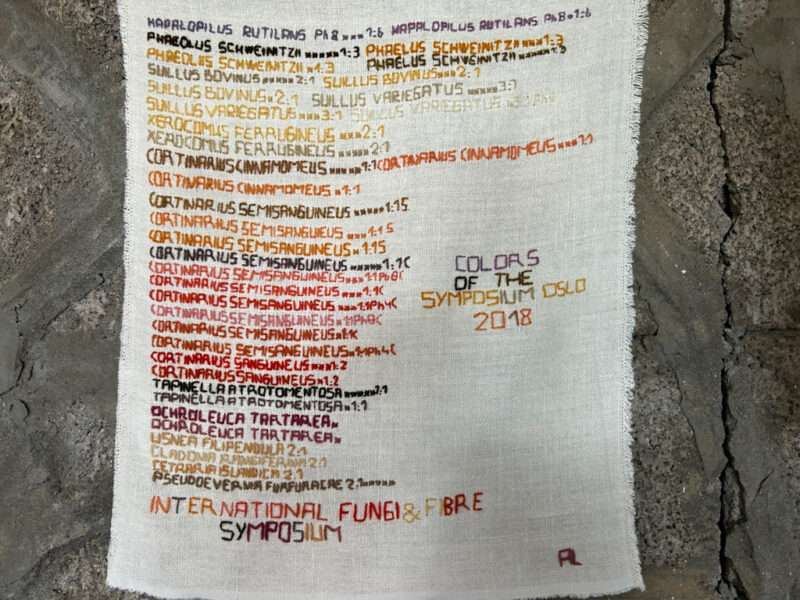 HAPALOPILUS RUTILANS Ph8 ×××1:6 HAPALOPILUS RUTILANS Ph8×1:6
PHAEOLUS SCHWEINITZII ×××××1:3 PHAELUS SCHWEINITZII ×××1:3
PHAEOLUS SCHWEINITZII×1:3 PHAELUS SCHWEINITZII
SUILLUS BOVINUS×××××2:1 SUILLUS BOVINUS×××2:1
SUILLUS BOVINUS×2:1 SUILLUS VARIEGATUS ×××3:1
SUILLUS VARIEGATUS×××3:1 SUILLUS VARIEGATUS
XEROCOMUS FERRUGINEUS ×××2:1
XEROCOMUS FERRUGINEUS ×××××2:1
CORTINARIUS CINNAMOMEUS ×××××1:1 CORTINARIUS CINNAMOMEUS ×××1:1
CORTINARIUS CINNAMOMEUS ×1:1
CORTINARIUS SEMISANGUINEUS ×××××1:15
CORTINARIUS SEMISANGUIEUS ×××1:15
CORTINARIUS SEMISANGUINEUS ×1:15
CORTINARIUS SEMISANGUINEUS ×××××1:1C
CORTINARIUS SEMISANGUINEUS×××1:1Ph8C
CORTINARIUS SEMISANGUINEUS ×××1:1C
CORTINARIUS SEMISANGUINEUS ×××1:1Ph4C
CORTINARIUS SEMISANGUINEUS ×1:1Ph8C
CORTINARIUS SEMISANGUINEUS×1:1C
CORTINARIUS SEMISANGUINEUS×1:1Ph4C
CORTINARIUS SANGUINEUS×××1:2
CORTINARIUS SANGUINEUS×1:2
TAPINELLA ATROTOMENTOSA×××××1:1
TAPINELLA ATROTOMENTOSA×1:1
OCHROLEUCA TARTAREA×
OCHROLEUCA TARTAREA×
USNEA FILIPENDULA 2:1
CLADONIA RANGIFERINA 2:1
CETRARIA ISLANDICA 2:1
PSEUDOEVERNIA FURFURACAE 2:1×××××
INTERNATIONAL FUNGI & FIBRE
SYMPOSIUM
COLORS
OF THE
SYMPOSIUM OSLO
2018